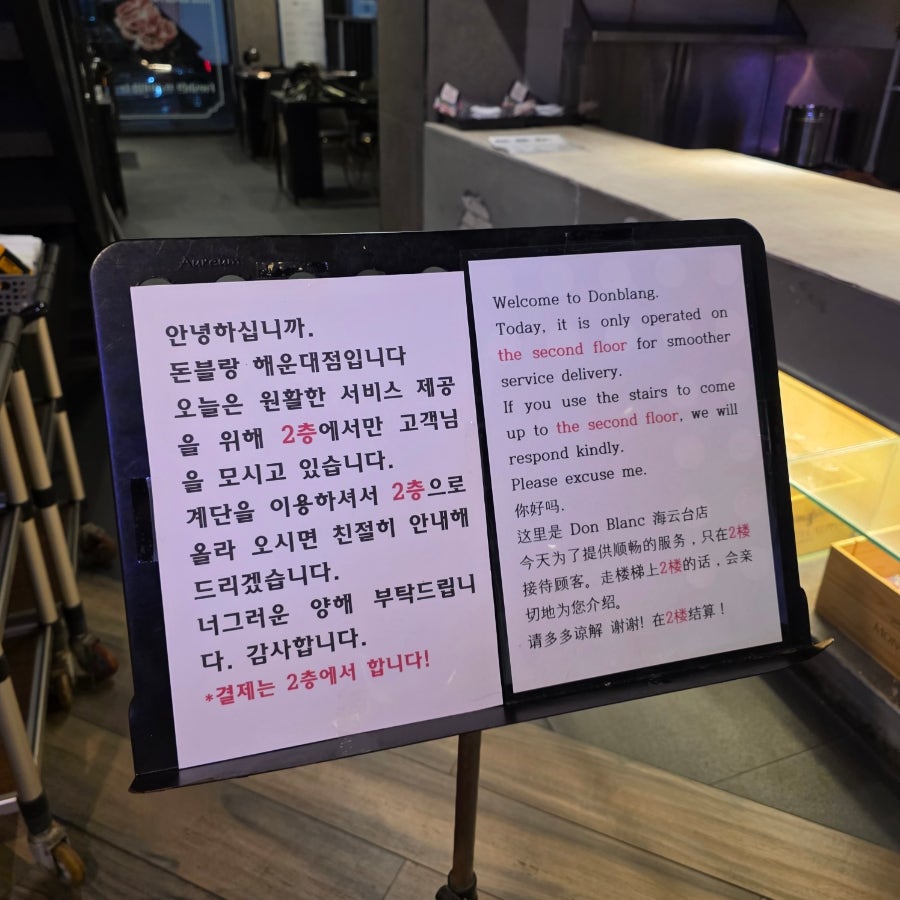 Aureum
안녕하십니까.
돈블랑 해운대점입니다
오늘은 원활한 서비스 제공
을 위해 2층에서만 고객님
을 모시고 있습니다.
계단을 이용하셔서 2층으로
올라 오시면 친절히 안내해
드리겠습니다.
너그러운 양해 부탁드립니
다. 감사합니다.
*결제는 2층에서 합니다!
Welcome to Donblang.
Today, it is only operated on
the second floor for smoother
service delivery.
If you use the stairs to come
up to the second floor, we will
respond kindly.
Please excuse me.
你好吗.
这里是 Don Blanc 海云台店
今天为了提供顺畅的服务，只在2楼
接待顾客。走楼梯上2楼的话，会亲
切地为您介绍。
请多多谅解 谢谢! 在2楼结算！